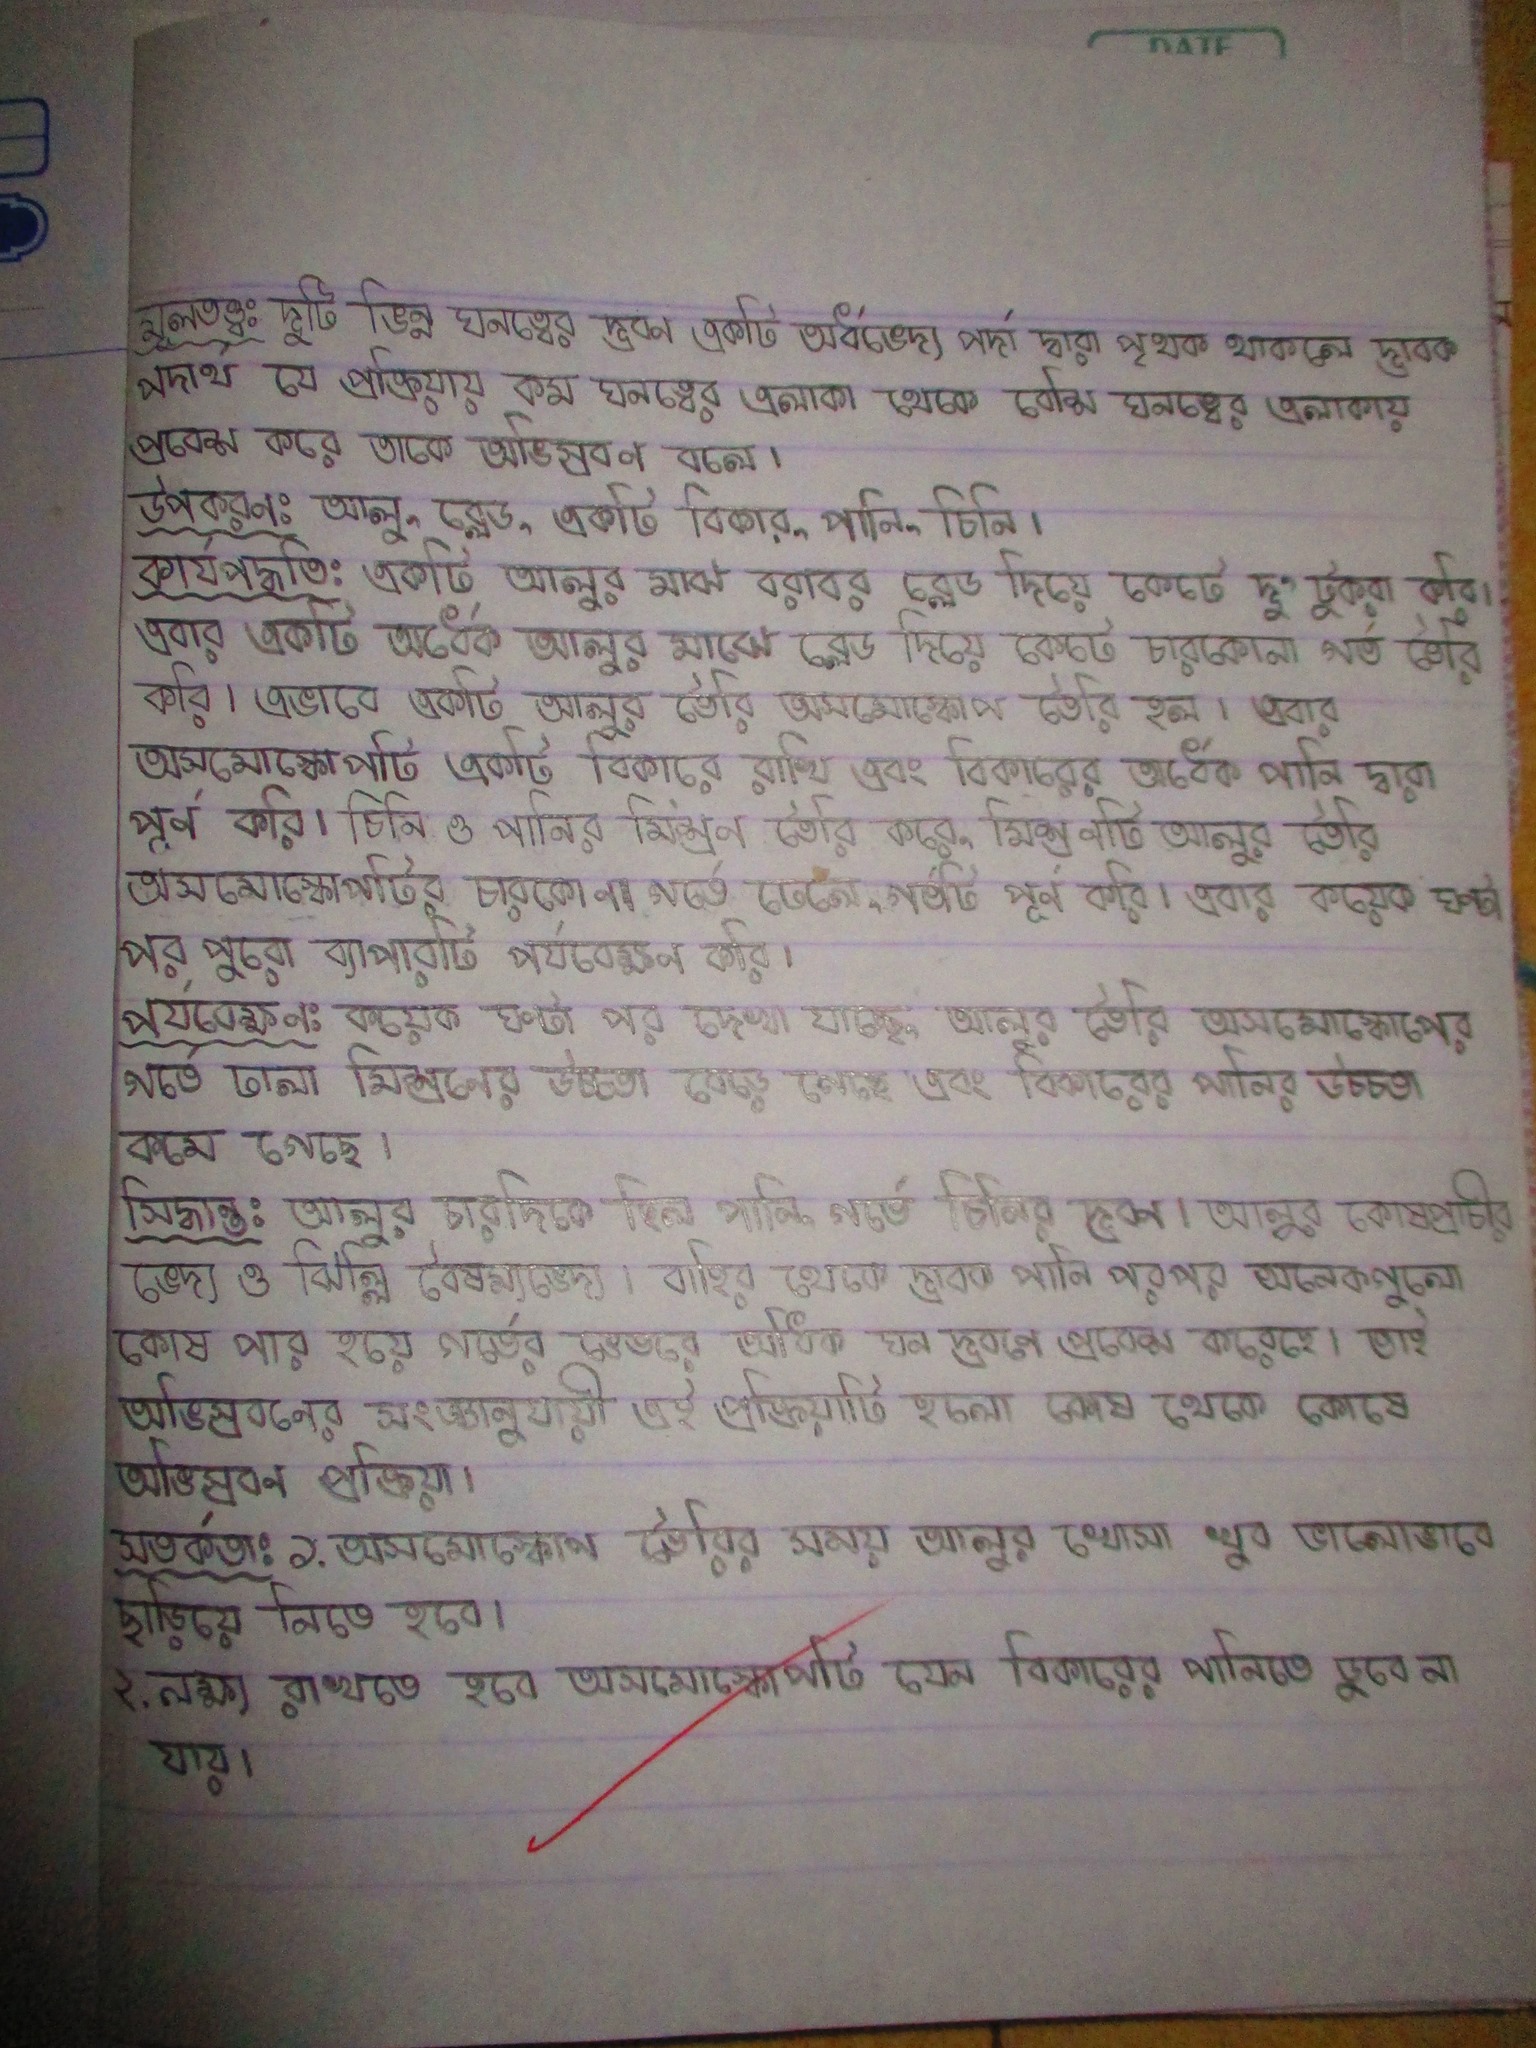 DATE
মূলতত্ত্বঃ দুটি ভিন্ন ঘনত্বের দ্রবণ একটি অর্ধভেদ্য পর্দা দ্বারা পৃথক থাকলে দ্রাবক
পদার্থ যে প্রক্রিয়ায় কম ঘনত্বের এলাকা থেকে বেশি ঘনত্বের এলাকায়
প্রবেশ করে তাকে অভিস্রবণ বলে।
উপকরণঃ আলু, ব্লেড, একটি বিকার, পানি, চিনি।
কার্যপদ্ধতিঃ একটি আলুর মাঝ বরাবর ব্লেড দিয়ে কেটে দু' টুকরা করি।
এবার একটি অর্ধেক আলুর মাঝে ব্লেড দিয়ে কেটে চারকোনা গর্ত তৈরি
করি। এভাবে একটি আলুর তৈরি অসমোস্কোপ তৈরি হল। এবার
অসমোস্কোপটি একটি বিকারে রাখি এবং বিকারের অর্ধেক পানি দ্বারা
পূর্ণ করি। চিনি ও পানির মিশ্রণ তৈরি করে, মিশ্রণটি আলুর তৈরি
অসমোস্কোপটির চারকোনা গর্তে ঢেলে, গর্তটি পূর্ণ করি। এবার কয়েক ঘন্টা
পর পুরো ব্যাপারটি পর্যবেক্ষণ করি।
পর্যবেক্ষণঃ কয়েক ঘন্টা পর দেখা যাচ্ছে, আলুর তৈরি অসমোস্কোপের
গর্তে ঢালা মিশ্রণের উচ্চতা বেড়ে গেছে এবং বিকারের পানির উচ্চতা
কমে গেছে।
সিদ্ধান্তঃ আলুর চারদিকে ছিল পানি, গর্তে চিনির দ্রবণ। আলুর কোষপ্রাচীর
ভেদ্য ও ঝিল্লি বৈষম্যভেদ্য। বাহির থেকে দ্রাবক পানি পরপর অনেকগুলো
কোষ পার হয়ে গর্তের ভেতরে অধিক ঘন দ্রবণে প্রবেশ করেছে। তাই
অভিস্রবনের সংজ্ঞানুযায়ী এই প্রক্রিয়াটি হলো কোষ থেকে কোষে
অভিস্রবণ প্রক্রিয়া।
সতর্কতাঃ ১. অসমোস্কোপ তৈরির সময় আলুর খোসা খুব ভালোভাবে
ছাড়িয়ে নিতে হবে।
২. লক্ষ্য রাখতে হবে অসমোস্কোপটি যেন বিকারের পানিতে ডুবে না
যায়।